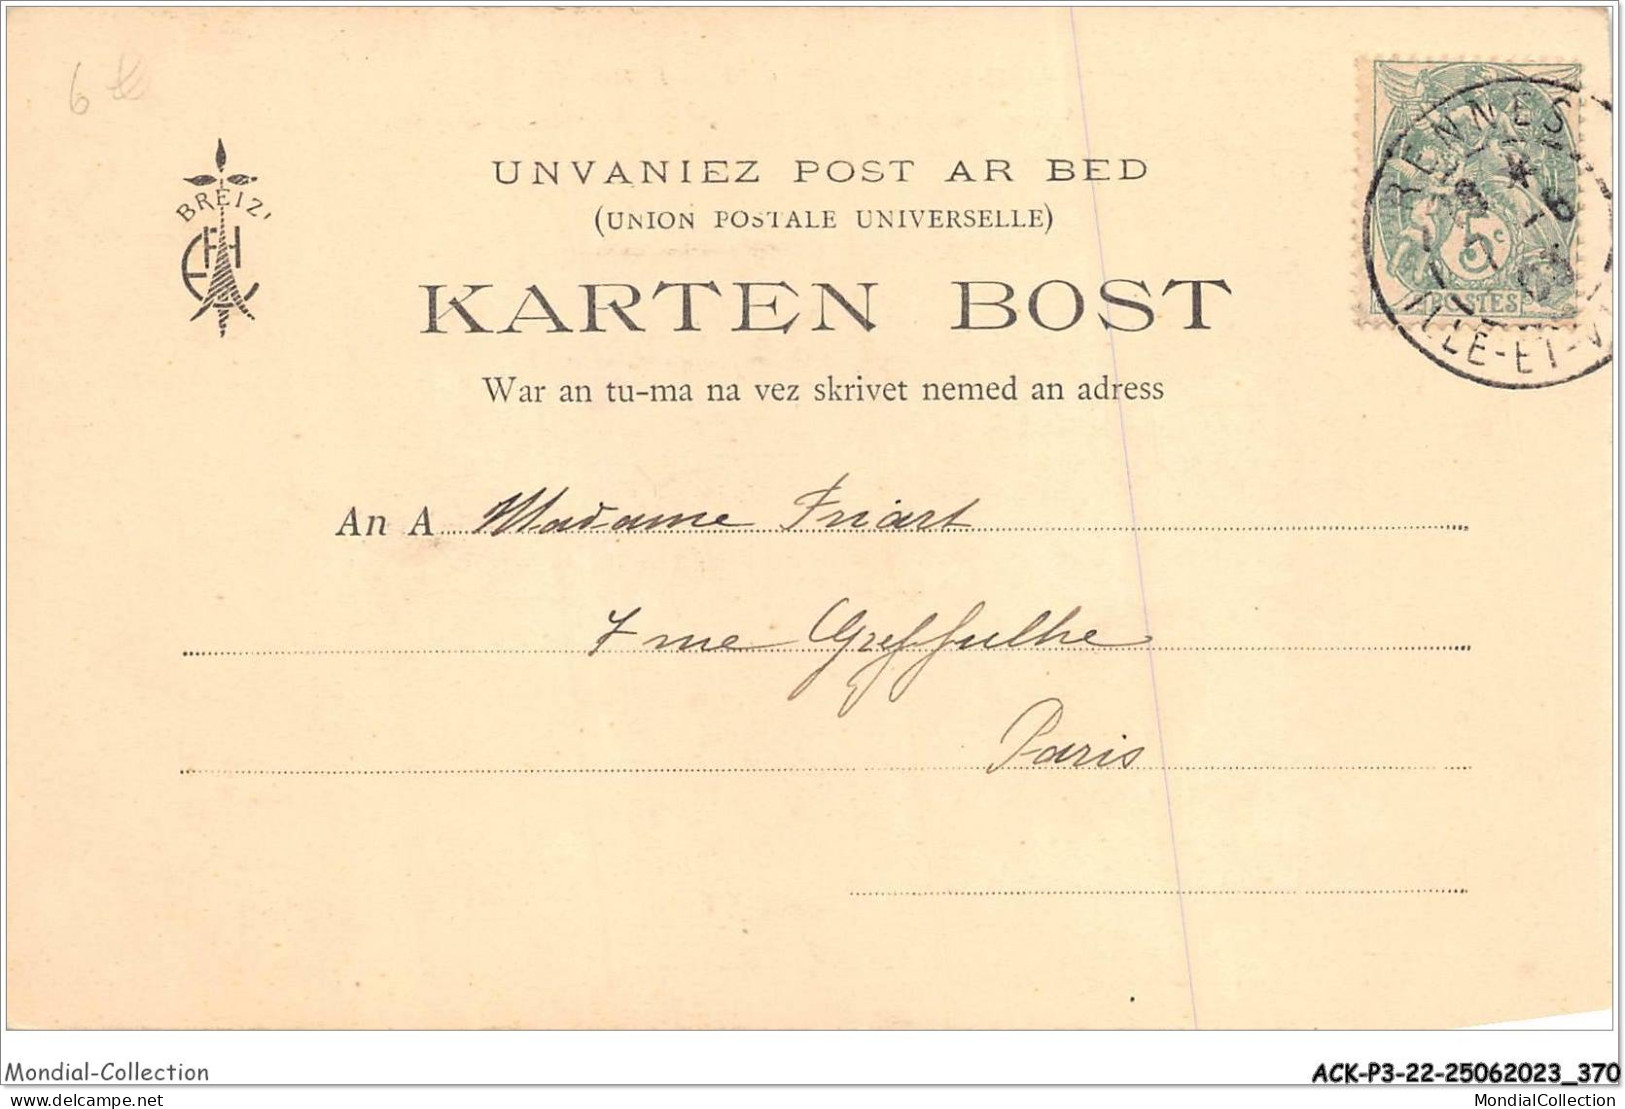 6
BREIZ'
UNVANIEZ POST AR BED
(UNION POSTALE UNIVERSELLE)
KARTEN BOST
War an tu-ma na vez skrivet nemed an adress
RENNES
5c
POSTES
ILLE-ET-V
An A Madame Friart
7 rue Greffulhe
Paris
Mondial-Collection
ACK-P3-22-25062023_370
delcampe.net
MondialCollection